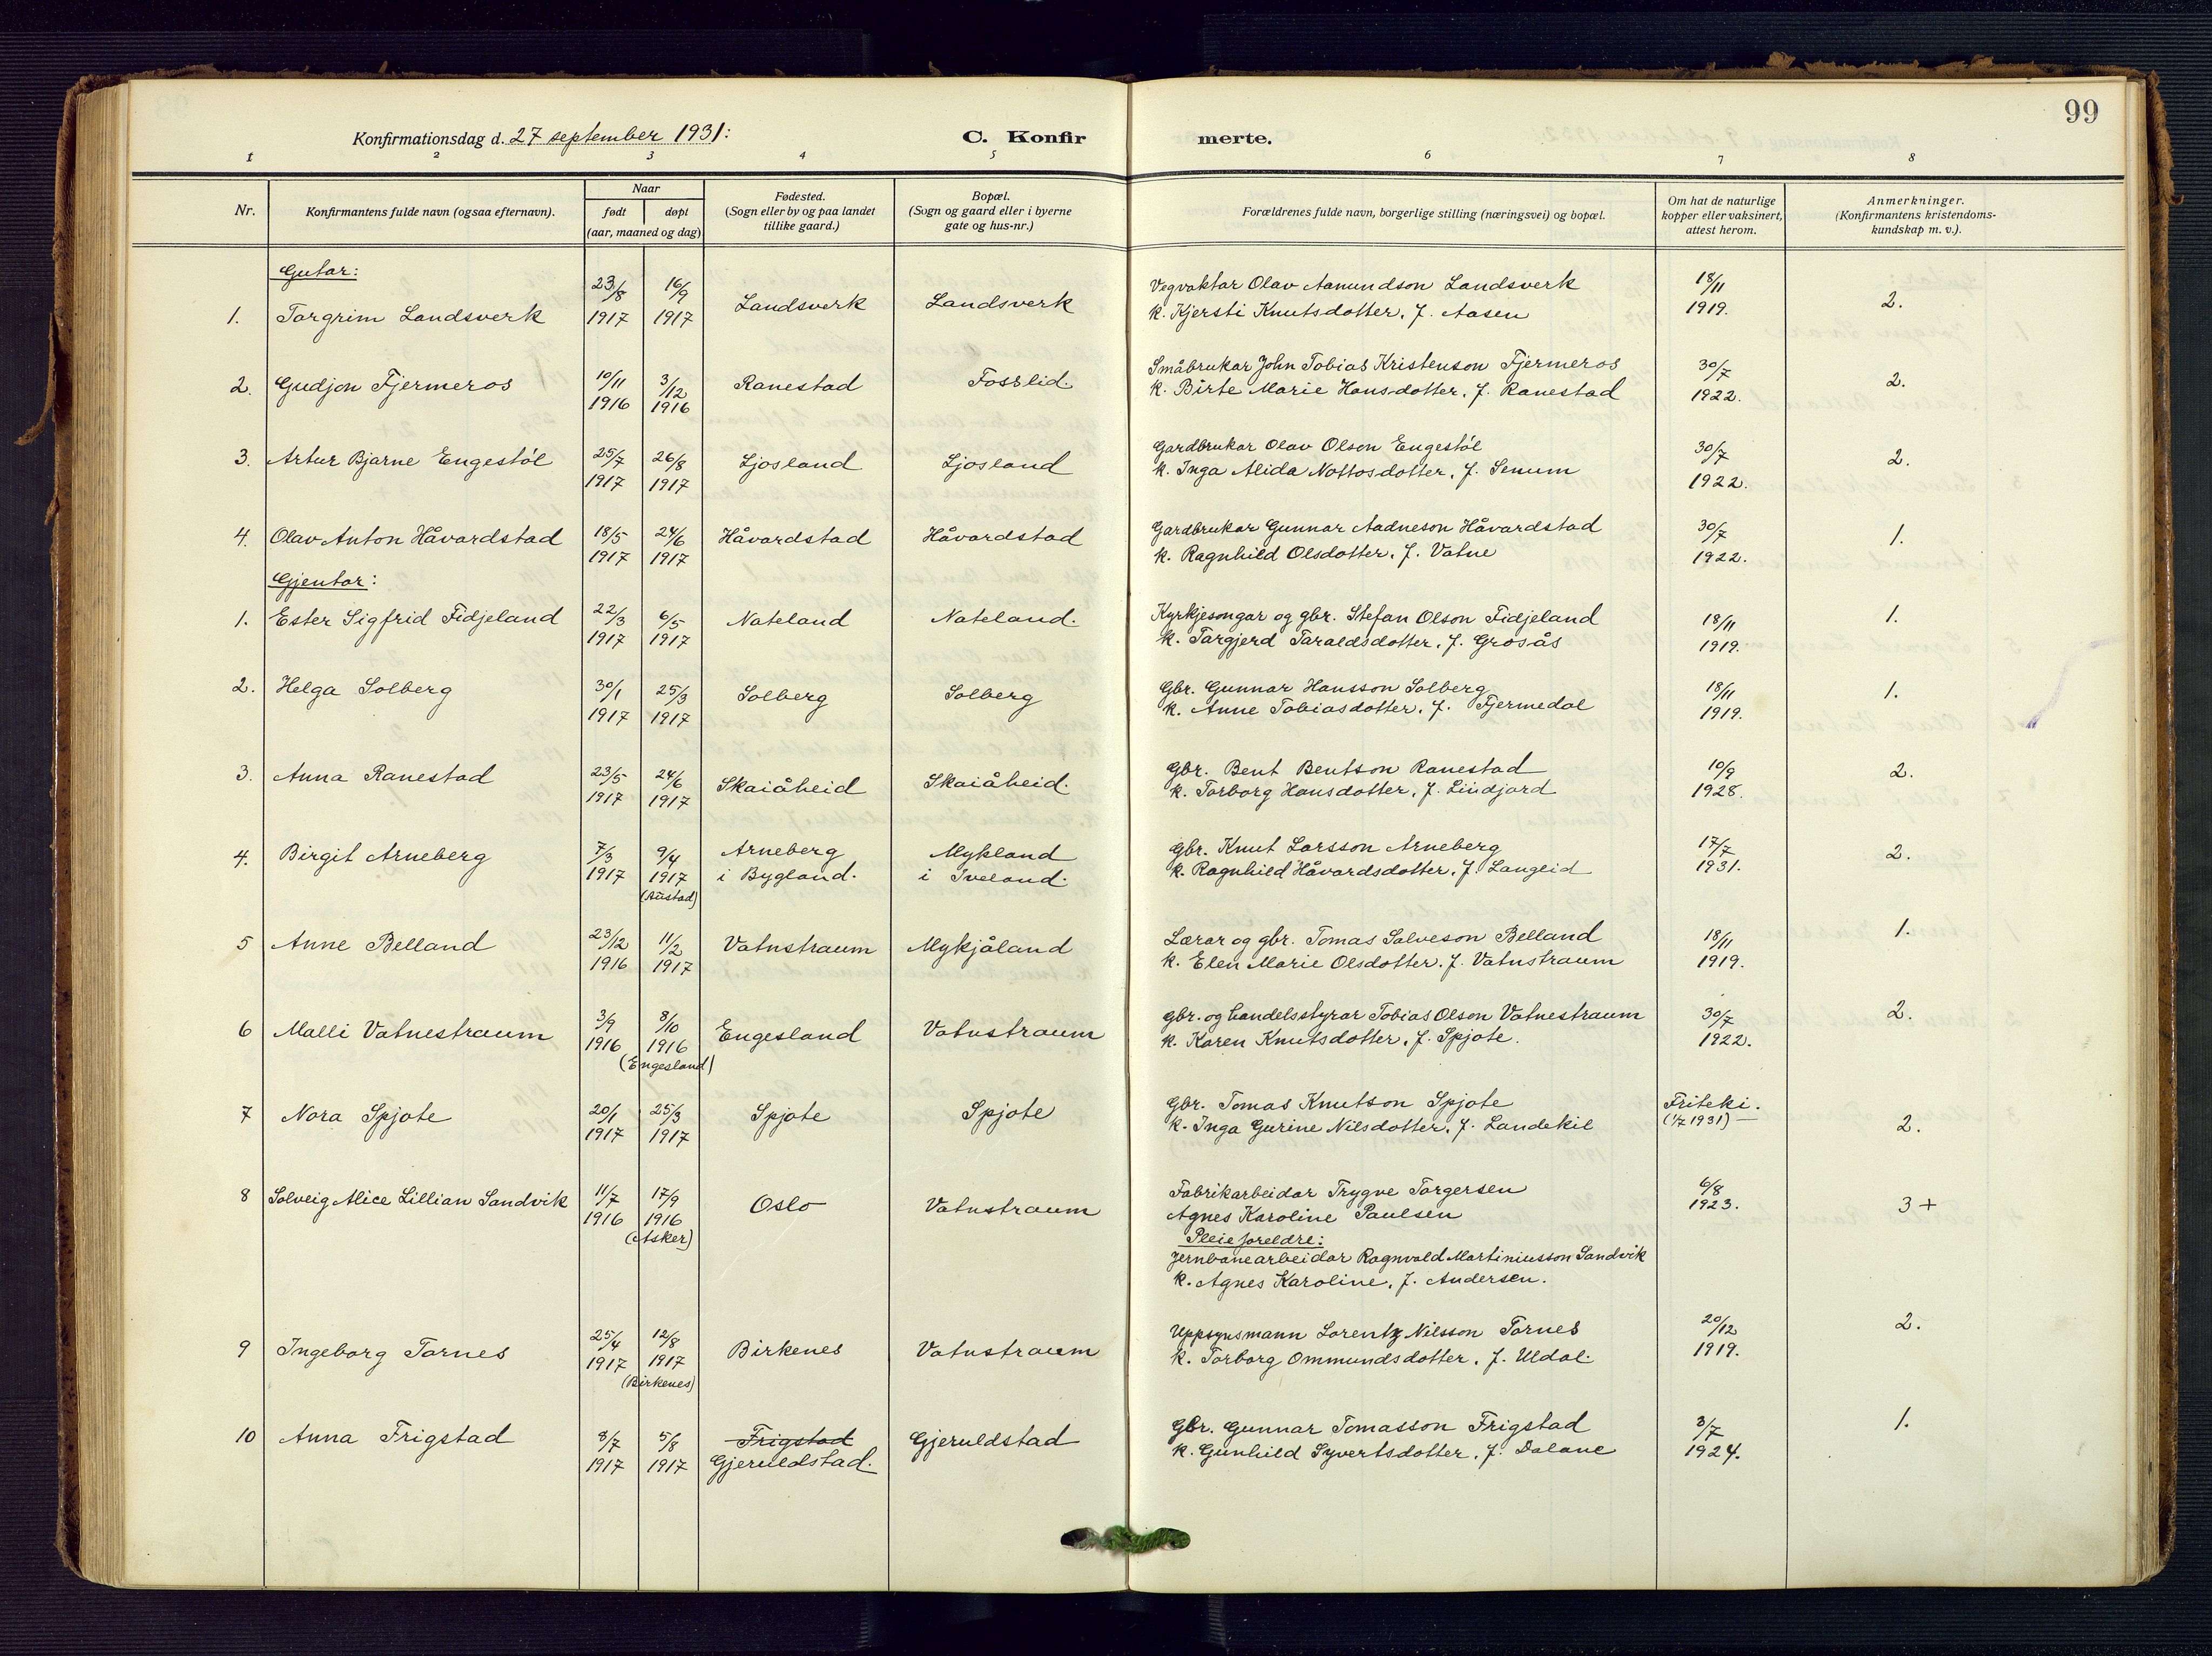 99
Konfirmationsdag d. 27 september 1931:
C. Konfirmerte.
1 2 3 4 5 6 7 8
Nr.
Konfirmantens fulde navn (ogsaa efternavn).
Naar
født døpt
(aar, maaned og dag)
Fødested.
(Sogn eller by og paa landet
tillike gaard.)
Bopæl.
(Sogn og gaard eller i byerne
gate og hus-nr.)
Forældrenes fulde navn, borgerlige stilling (næringsvei) og bopæl.
Om hat de naturlige
kopper eller vaksinert,
attest herom.
Anmerkninger.
(Konfirmantens kristendoms-
kundskap m. v.).
Gutar:
1. Torgrim Landsverk 23/8 1917 16/9 1917 Landsverk Landsverk
Vegvaktar Olav Aamundson Landsverk
k. Kjersti Knutsdotter, f. Aasen
18/11 1919. 2.
2. Gudjon Fjermeros 10/11 1916 3/12 1916 Ranestad Fosslid.
Småbrukar John Tobias Kristenson Fjermeros
k. Birte Marie Hansdotter, f. Ranestad
30/7 1922. 2.
3. Artur Bjarne Engestøl 25/7 1917 26/8 1917 Ljosland Ljosland
Gardbrukar Olav Olson Engestøl
k. Inga Alida Nottosdotter, f. Senum
30/7 1922. 2.
4. Olav Anton Håvardstad 18/5 1917 24/6 1917 Håvardstad Håvardstad
Gardbrukar Gunnar Aadneson Håvardstad
k. Ragnhild Olsdotter, f. Vatne
30/7 1922. 1.
Gjentor:
1. Ester Sigfrid Fidjeland 22/3 1917 6/5 1917 Nateland Nateland.
Kyrkjesongar og gbr. Stefan Olson Fidjeland
k. Targjerd Taraldsdotter, f. Grosås
18/11 1919. 1.
2. Helga Solberg 30/1 1917 25/3 1917 Solberg Solberg
Gbr. Gunnar Hansson Solberg
k. Anne Tobiasdotter, f. Fjermedal
18/11 1919. 1.
3. Anna Ranestad 23/5 1917 24/6 1917 Skaiåheid Skaiåheid.
Gbr. Bent Bentson Ranestad
k. Torborg Hansdotter, f. Lindjord
10/9 1928. 2.
4. Birgit Arneberg 7/3 1917 9/4 1917 (Austad) Arneberg i Bygland. Mykland i Iveland.
Gbr. Knut Larsson Arneberg
k. Ragnhild Håvardsdotter, f. Langeid
17/7 1931. 2.
5 Anne Belland 23/12 1916 11/2 1917 Vatnstraum Mykjåland
Lærar og gbr. Tomas Salveson Belland
k. Elen Marie Olsdotter, f. Vatnstraum
18/11 1919. 1.
6 Malli Vatnestraum 3/9 1916 8/10 1916 (Engesland) Engesland Vatnstraum
gbr. og handelsstyrar Tobias Olson Vatnestraum
k. Karen Knutsdotter, f. Spjote.
30/7 1922. 2.
7 Nora Spjote 20/1 1917 25/3 1917 Spjote Spjote
Gbr. Tomas Knutson Spjote
k. Inga Gurine Nilsdotter, f. Landekil
Friteki. (1/7 1931) 2.
8 Solveig Alice Lillian Sandvik 11/7 1916 17/9 1916 (Asker) Oslo Vatnstraum
Fabrikarbeidar Trygve Torgersen
Agnes Karoline Paulsen
Pleieforeldre:
Jernbanearbeidar Ragnvald Martiniusson Sandvik
k. Agnes Karoline, f. Andersen.
6/8 1923. 3+
9 Ingeborg Tornes 25/4 1917 12/8 1917 (Birkenes) Birkenes Vatnstraum
Uppsynsmann Lorentz Nilsson Tornes
k. Torborg Ommundsdotter, f. Uldal.
20/12 1919. 2.
10 Anna Frigstad 8/7 1917 5/8 1917 Frigstad Gjeruldstad. Gjeruldstad
Gbr. Gunnar Tomasson Frigstad
k. Gunhild Syvertsdotter, f. Dalane
3/7 1924. 1.